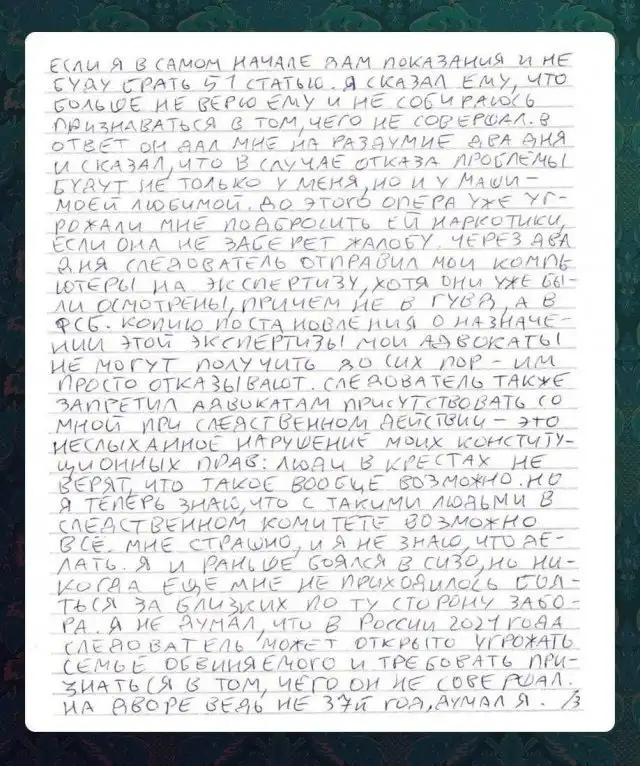 ЕСЛИ Я В САМОМ НАЧАЛЕ ДАМ ПОКАЗАНИЯ И НЕ
БУДУ БРАТЬ 51 СТАТЬЮ. Я СКАЗАЛ ЕМУ, ЧТО
БОЛЬШЕ НЕ ВЕРЮ ЕМУ И НЕ СОБИРАЮСЬ
ПРИЗНАВАТЬСЯ В ТОМ, ЧЕГО НЕ СОВЕРШАЛ. В
ОТВЕТ ОН ДАЛ МНЕ НА РАЗДУМИЕ ДВА ДНЯ
И СКАЗАЛ, ЧТО В СЛУЧАЕ ОТКАЗА ПРОБЛЕМЫ
БУДУТ НЕ ТОЛЬКО У МЕНЯ, НО И У МАШИ –
МОЕЙ ЛЮБИМОЙ. ДО ЭТОГО ОПЕРА УЖЕ УГ-
РОЖАЛИ МНЕ ПОДБРОСИТЬ ЕЙ НАРКОТИКИ,
ЕСЛИ ОНА НЕ ЗАБЕРЕТ ЖАЛОБУ. ЧЕРЕЗ ДВА
ДНЯ СЛЕДОВАТЕЛЬ ОТПРАВИЛ МОИ КОМПЬ
ЮТЕРЫ НА ЭКСПЕРТИЗУ, ХОТЯ ОНИ УЖЕ БЫ-
ЛИ ОСМОТРЕНЫ, ПРИЧЕМ НЕ В ГУВД, А В
ФСБ. КОПИЮ ПОСТАНОВЛЕНИЯ О НАЗНАЧЕ-
НИИ ЭТОЙ ЭКСПЕРТИЗЫ МОИ АДВОКАТЫ
НЕ МОГУТ ПОЛУЧИТЬ ДО СИХ ПОР – ИМ
ПРОСТО ОТКАЗЫВАЮТ. СЛЕДОВАТЕЛЬ ТАКЖЕ
ЗАПРЕТИЛ АДВОКАТАМ ПРИСУТСТВОВАТЬ СО
МНОЙ ПРИ СЛЕДСТВЕННОМ ДЕЙСТВИИ – ЭТО
НЕСЛЫХАННОЕ НАРУШЕНИЕ МОИХ КОНСТИТУ-
ЦИОННЫХ ПРАВ: ЛЮДИ В КРЕСТАХ НЕ
ВЕРЯТ, ЧТО ТАКОЕ ВООБЩЕ ВОЗМОЖНО. НО
Я ТЕПЕРЬ ЗНАЮ, ЧТО С ТАКИМИ ЛЮДЬМИ В
СЛЕДСТВЕННОМ КОМИТЕТЕ ВОЗМОЖНО
ВСЕ. МНЕ СТРАШНО, И Я НЕ ЗНАЮ, ЧТО ДЕ-
ЛАТЬ. Я И РАНЬШЕ БОЯЛСЯ В СИЗО, НО НИ-
КОГДА ЕЩЕ МНЕ НЕ ПРИХОДИЛОСЬ БОЯ-
ТЬСЯ ЗА БЛИЗКИХ ПО ТУ СТОРОНУ ЗАБО-
РА. Я НЕ ДУМАЛ, ЧТО В РОССИИ 2021 ГОДА
СЛЕДОВАТЕЛЬ МОЖЕТ ОТКРЫТО УГРОЖАТЬ
СЕМЬЕ ОБВИНЯЕМОГО И ТРЕБОВАТЬ ПРИ-
ЗНАТЬСЯ В ТОМ, ЧЕГО ОН НЕ СОВЕРШАЛ.
НА ДВОРЕ ВЕДЬ НЕ 37Й ГОД, ДУМАЛ Я. /3